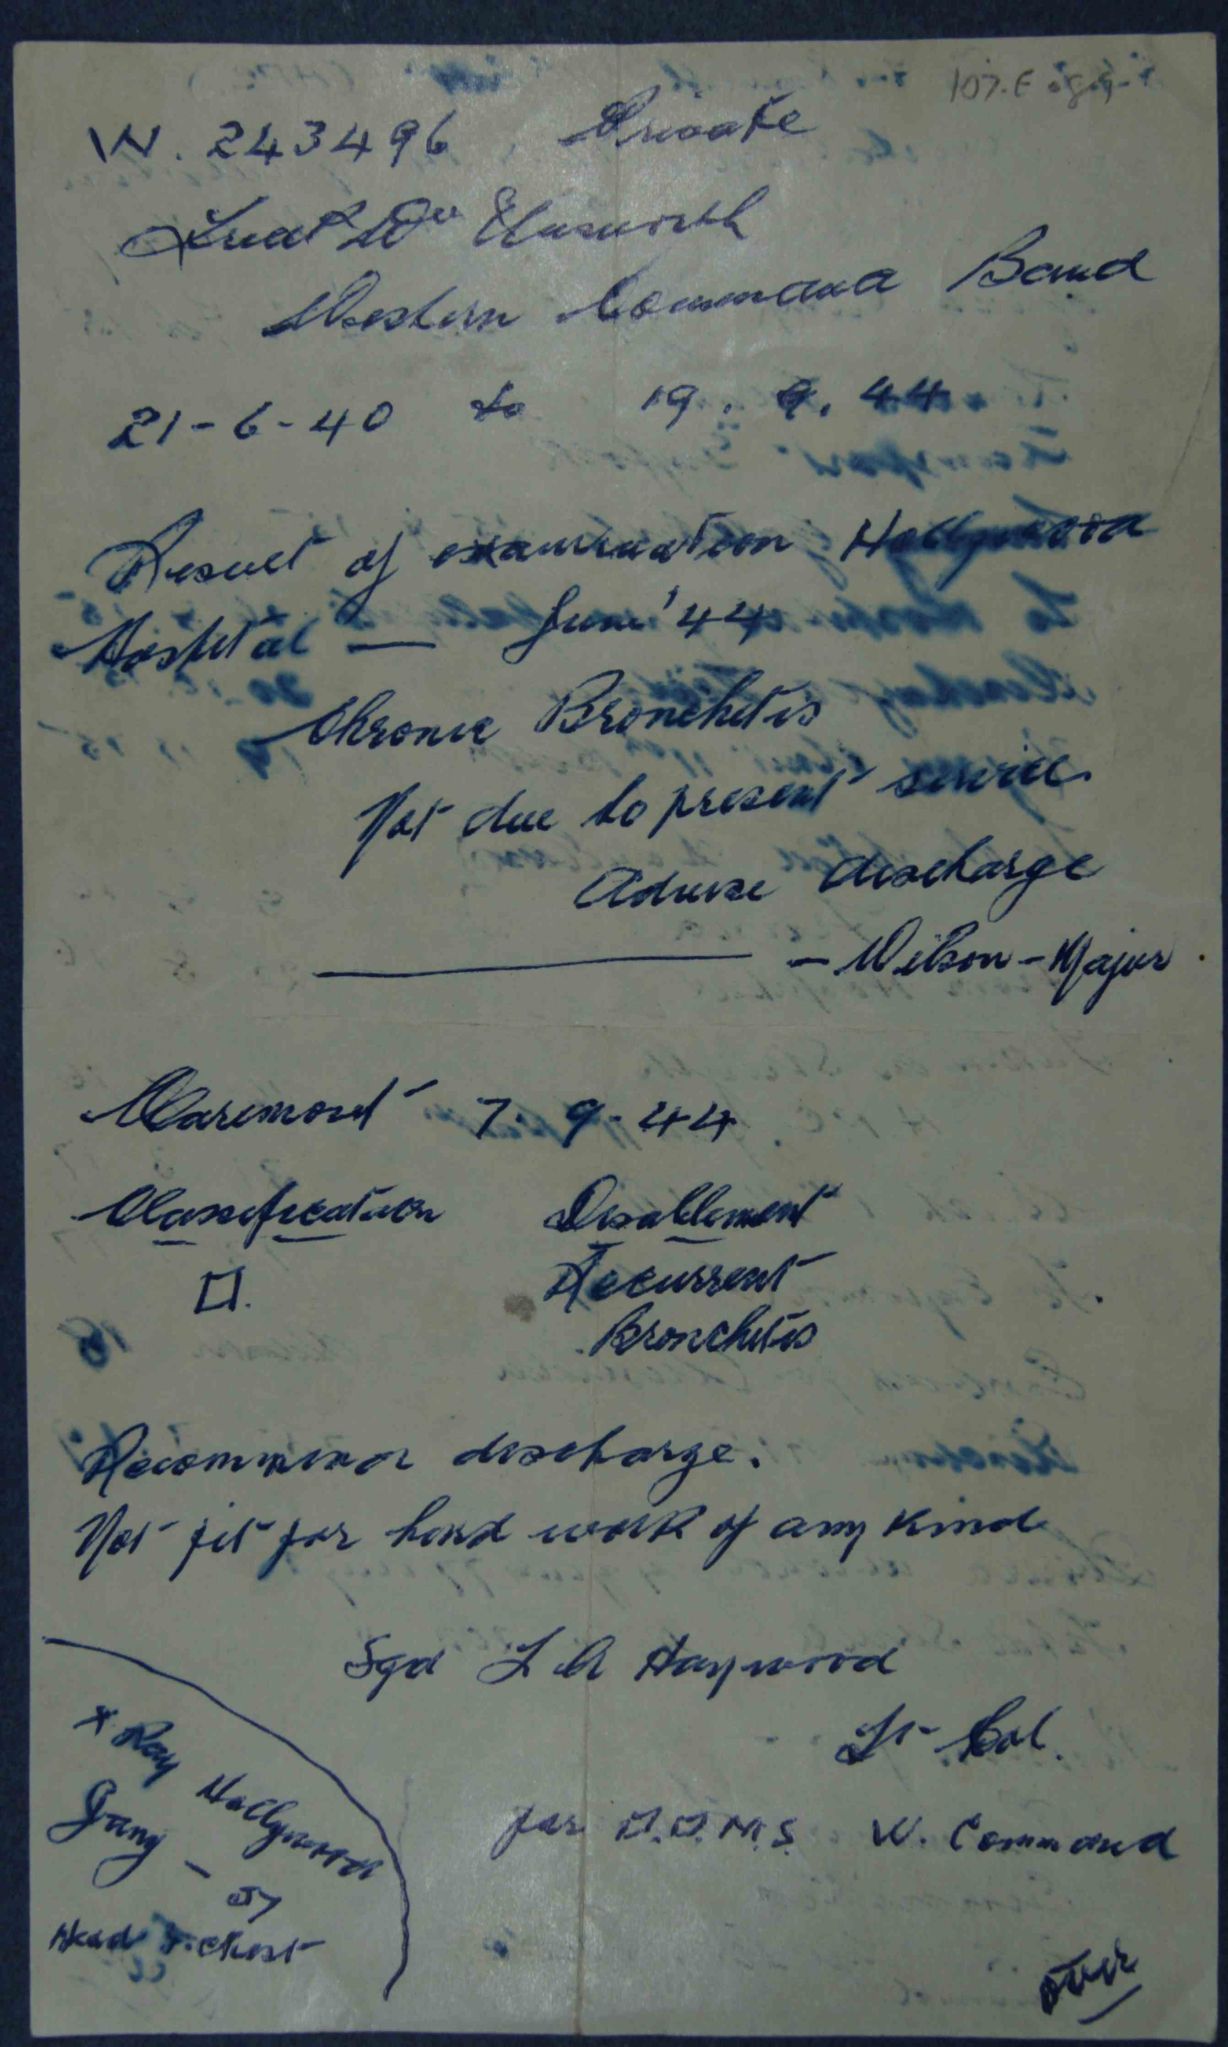 W. 243496 Private
Fred Wm Elmsworth
Western Command Band
21-6-40 to 19.9.44
Result of examination Hollywood
Hospital — June '44
Chronic Bronchitis
Not due to present service.
Advise discharge
— Wilson - Major.
Claremont 7-9-44
Classification Disablement
D. Recurrent
Bronchitis
Recommend discharge.
Not fit for hard work of any kind
Sgd L A Haywood
Lt Col.
for D.D.M.S. W. Command
X Ray Hollywood
Jany - 57
Head & Chest
over